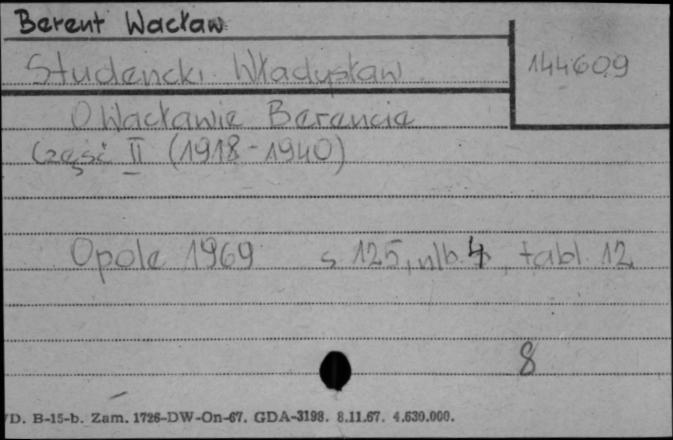 Berent Wacław
Studencki Władysław
144609
O Wacławie Berencie
Część II (1918-1940)
Opole 1969 s 125, nlb. 4, tabl. 12
8
D. B-15-b. Zam. 1726-DW-On-67. GDA-3198. 8.11.67. 4.630.000.